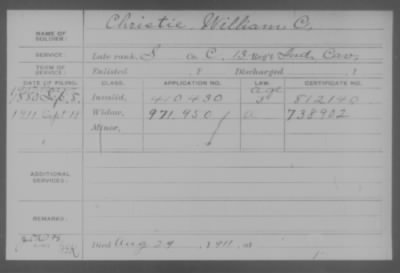 NAME OF SOLDIER: Christie, William C.
SERVICE: Late rank, S Co. C, 13 Reg't Ind. Cav.
TERM OF SERVICE: Enlisted , 1 Discharged , 1
DATE OF FILING. CLASS. APPLICATION NO. LAW. CERTIFICATE NO.
1880 Sept. 8, Invalid, 410.430 age 812140
1911 Sept 11 Widow, 971.950 738.902
Minor,
ADDITIONAL SERVICES:
REMARKS:
Died Aug 29, 1911, at